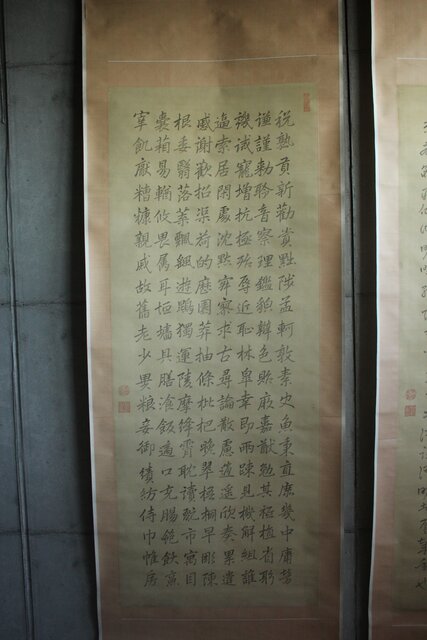 税熟貢新勸賞黜陟孟軻敦素史魚秉直庶幾中庸勞
謙謹勅聆音察理鑑貌辯色貽厥嘉猷勉其祗植省躬
譏誡寵增抗極殆辱近恥林皐幸即兩疎見機解組誰
逼索居閑處沈默寂寥求古尋論散慮逍遥欣奏累遣
慼謝歡招渠荷的歷園莽抽條枇杷晚翠梧桐早彫陳
根委翳落葉飄颻遊鵾獨運陵摩絳霄耽讀翫市寓目
囊箱易輶攸畏属耳垣墻具膳飡飯適口充腸飽飫烹
宰飢厭糟糠親戚故舊老少異粮妾御績紡侍巾帷房